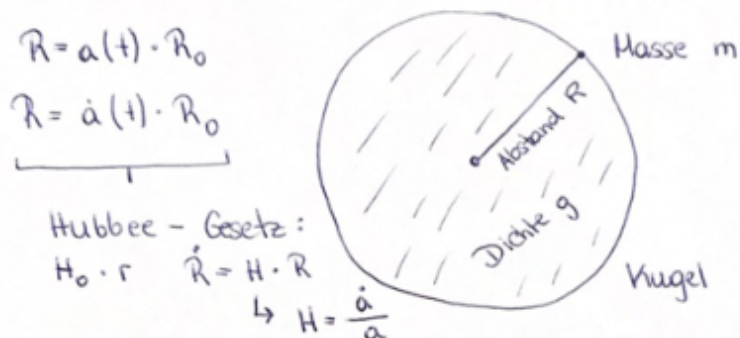 R = a(t) · R₀
R = ȧ(t) · R₀
Hubbee - Gesetz:
H₀ · r Ṙ = H · R
↳ H = ȧ/a
Masse m
Abstand R
Dichte ρ
Kugel